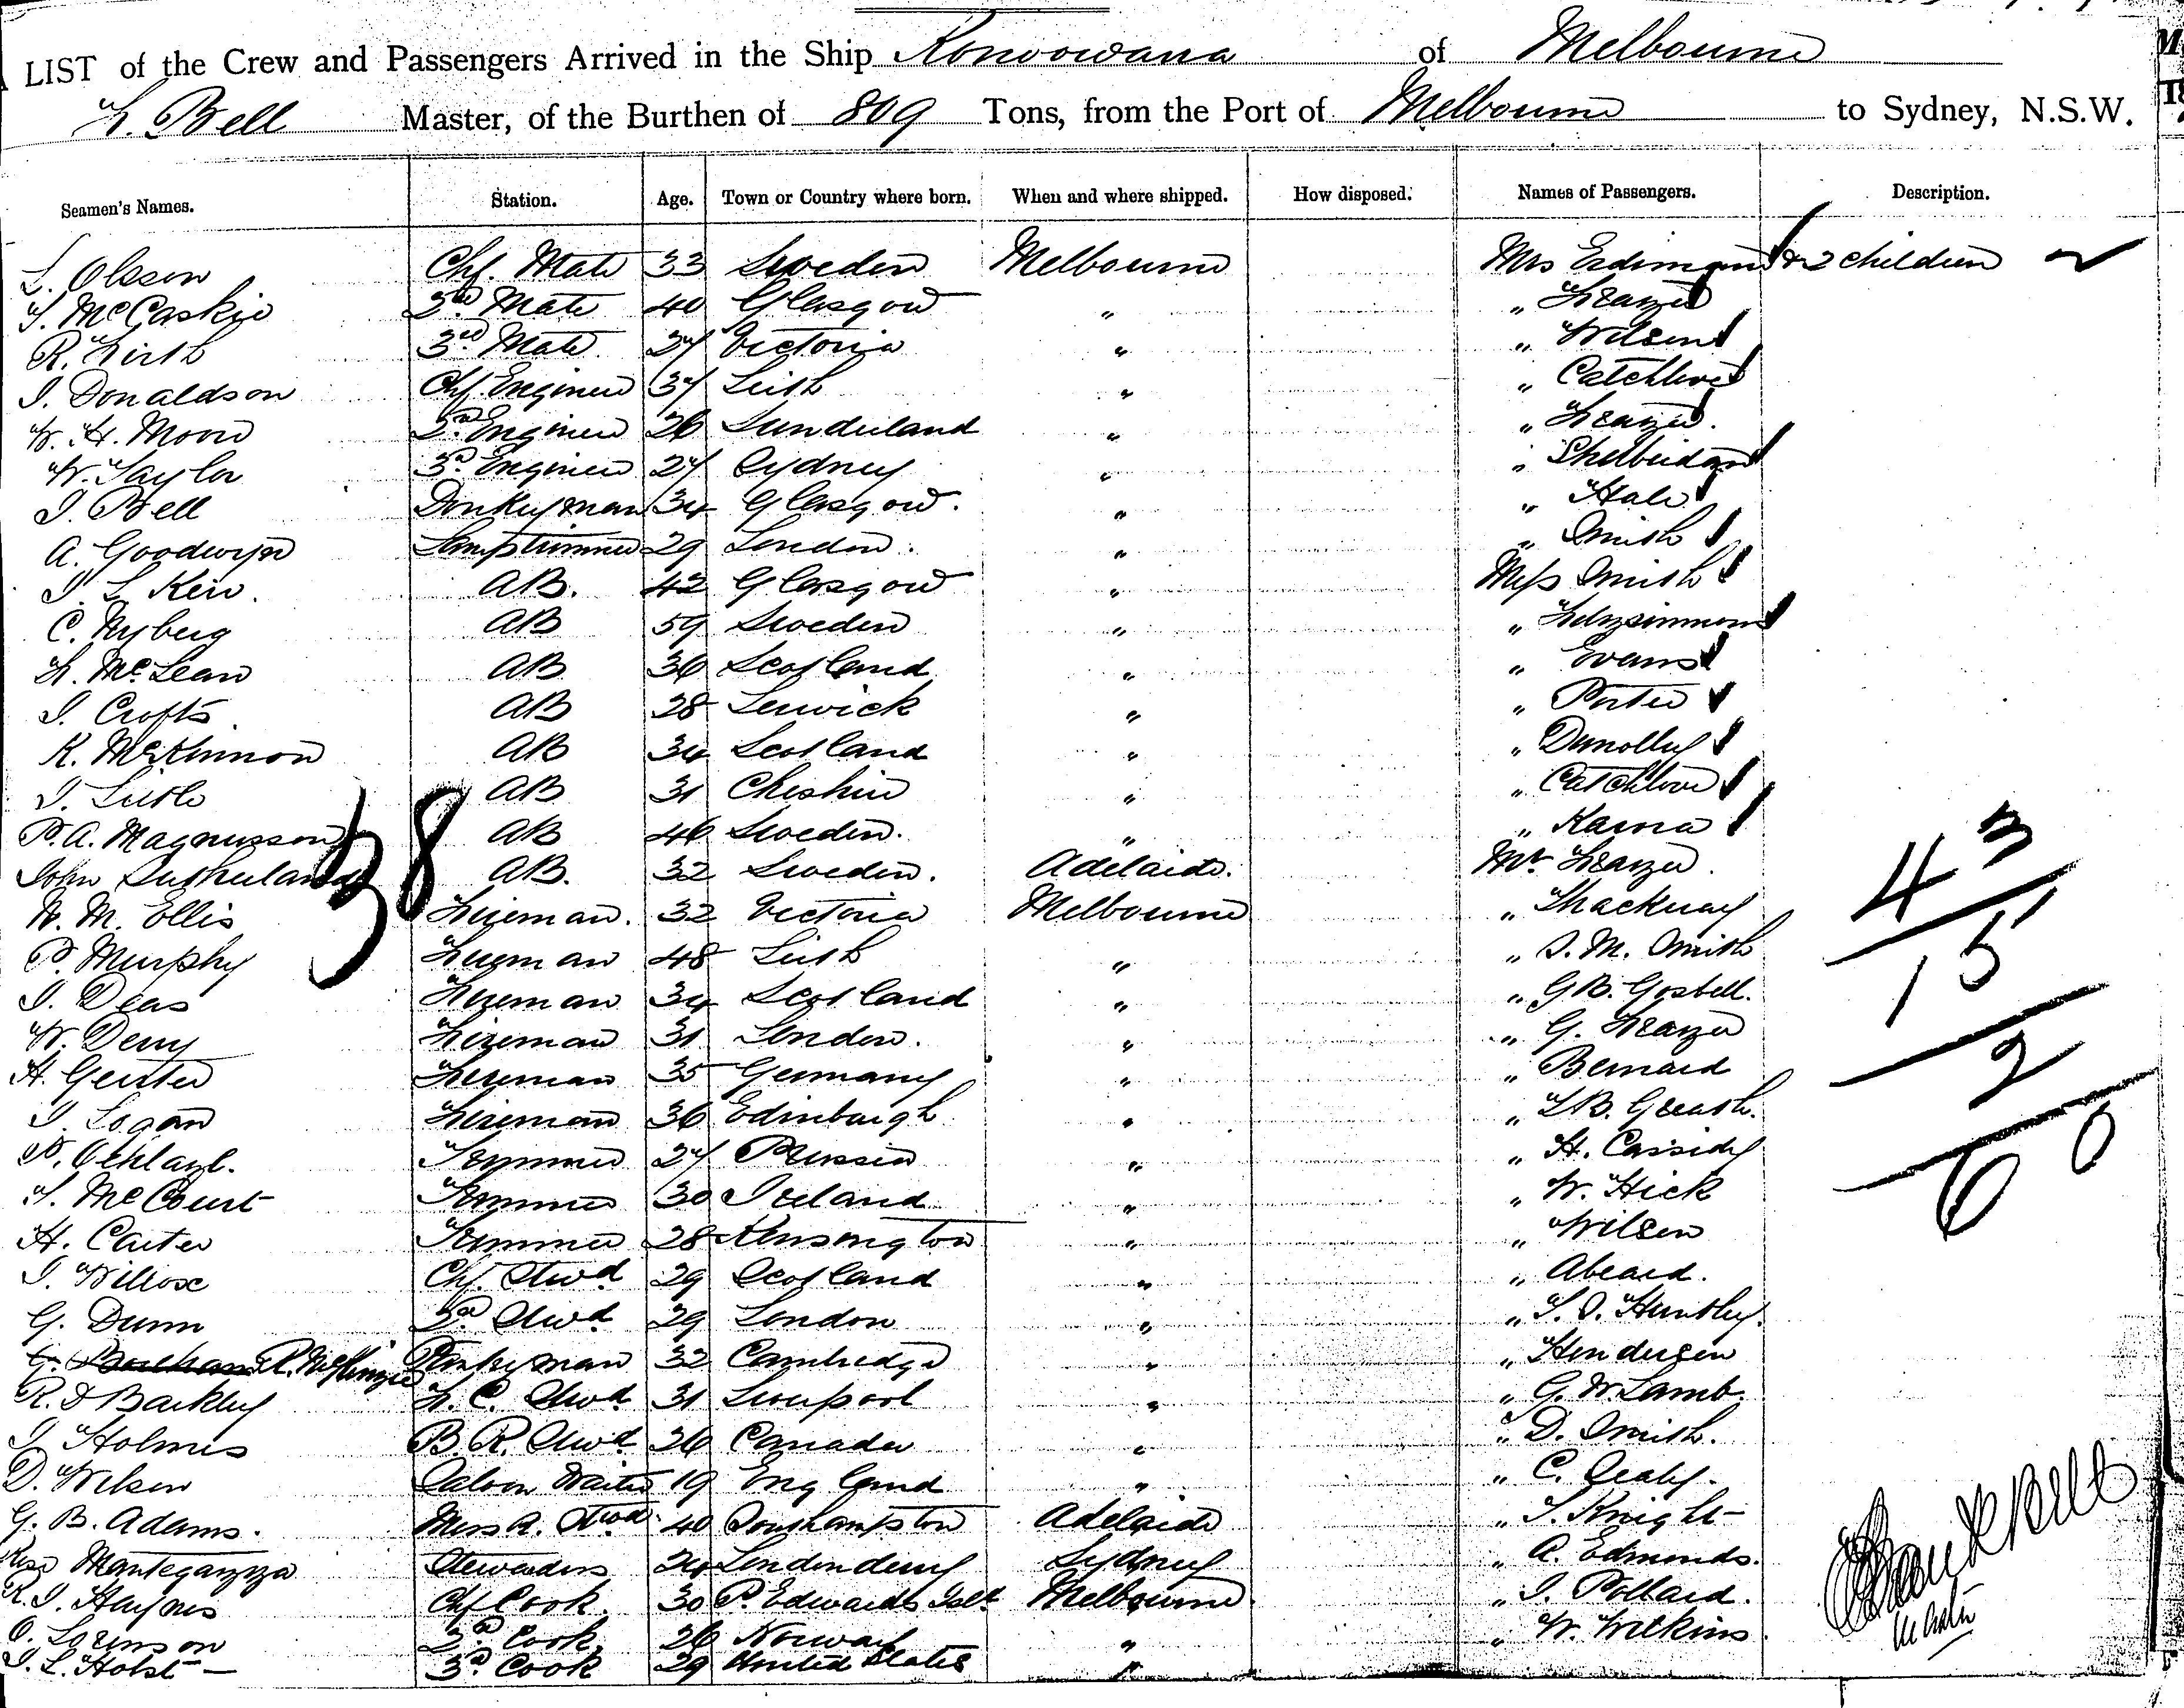 LIST of the Crew and Passengers Arrived in the Ship Konoowarra of Melbourne
F. Bell Master, of the Burthen of 809 Tons, from the Port of Melbourne to Sydney, N.S.W.
Seamen's Names. Station. Age. Town or Country where born. When and where shipped. How disposed. Names of Passengers. Description.
L. Olsson Chf. Mate 33 Sweden Melbourne Mrs & 2 children
McCaskie 2nd Mate 40 Glasgow " " Frazer
R. Firth 3rd Mate 27 Victoria " " Wilson
J. Donaldson Chf Engineer 37 Leith " " Catchlove
W. H. Moore 2nd Engineer 26 Sunderland " " Frazer
W. Taylor 3rd Engineer 27 Sydney " "
J. Bell Donkeyman 34 Glasgow. " " Hale
A. Goodwyn Lamptrimmer 29 London. " " Smith
AB. 42 Glasgow " Miss Smith
C. Nyberg AB 59 Sweden " " Fitzsimmons
F. McLean AB 36 Scotland " " Evans
J. Crofts AB 28 Lerwick " " Porter
K. McKinnon AB 34 Scotland " " Dunolly
J. Little AB 31 Cheshire " " Catchlove
P. A. Magnusson AB 46 Sweden. " "
John Sutherland AB. 32 Sweden. Adelaide. Mr Frazer
38
W. M. Ellis Fireman. 32 Victoria Melbourne " Thackeray
P. Murphy Fireman 48 Leith " " S. M. Smith
J. Deas Fireman 34 Scotland " " G B. Gosbell.
W. Derry Fireman 31 London. " " G. Frazer
H. Gerster Fireman 35 Germany " " Bernard
J. Logan Fireman 36 Edinburgh " "
Trimmer 27 Prussia " " H. Cassidy
McCourt Trimmer 30 Ireland " " W. Hick
H. Carter Trimmer 28 Kensington " " Wilson
J. Wilcox Chf. Stwd 29 Scotland " "
G. Dunn 2nd Stwd 29 London " " Huntley.
R. McKinzie Pantryman 32 Cambridge " " Henderson
R. D Barkley F. C. Stwd 31 Liverpool " " G. W. Lamb.
J Holmes B. R. Stwd 26 Canada " " D. Smith.
D. Wilson Saloon Waiter 19 England " " C. Sealy.
G. B. Adams. Mess R. Stwd. 40 Southampton Adelaide " Knight
Rose Mantegazza Stewardess 24 Londonderry Sydney " A. Edmonds.
R. J. Haynes Chf Cook. 30 P. Edwards Isld. Melbourne " J. Pollard.
O. Sorenson 2nd Cook 26 Norway " " W. Wilkins
J. L. Holst 3rd Cook 29 United States "
43
15
2
60
Frank Bell
Master